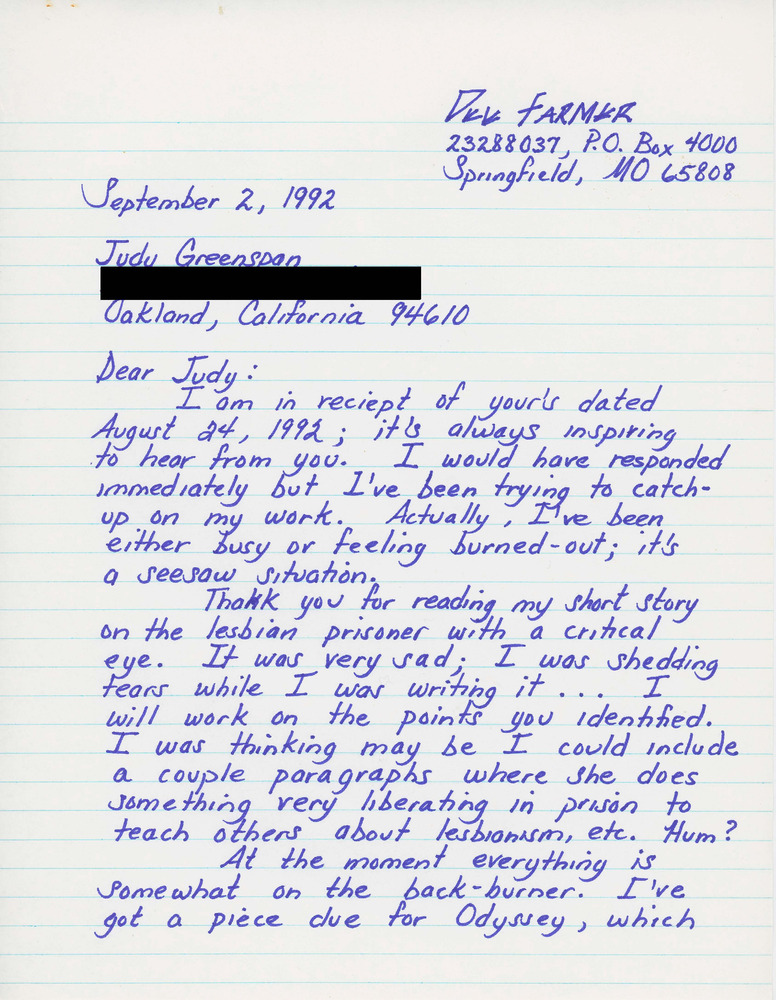 Dee Farmer
23288037, P.O. Box 4000
Springfield, MO 65808
September 2, 1992
Judy Greenspan
Oakland, California 94610
Dear Judy:
I am in reciept of your's dated
August 24, 1992; it's always inspiring
to hear from you. I would have responded
immediately but I've been trying to catch-
up on my work. Actually, I've been
either busy or feeling burned-out; it's
a seesaw situation.
Thakk you for reading my short story
on the lesbian prisoner with a critical
eye. It was very sad; I was shedding
tears while I was writing it ... I
will work on the points you identified.
I was thinking may be I could include
a couple paragraphs where she does
something very liberating in prison to
teach others about lesbianism, etc. Hum?
At the moment everything is
somewhat on the back-burner. I've
got a piece due for Odyssey, which